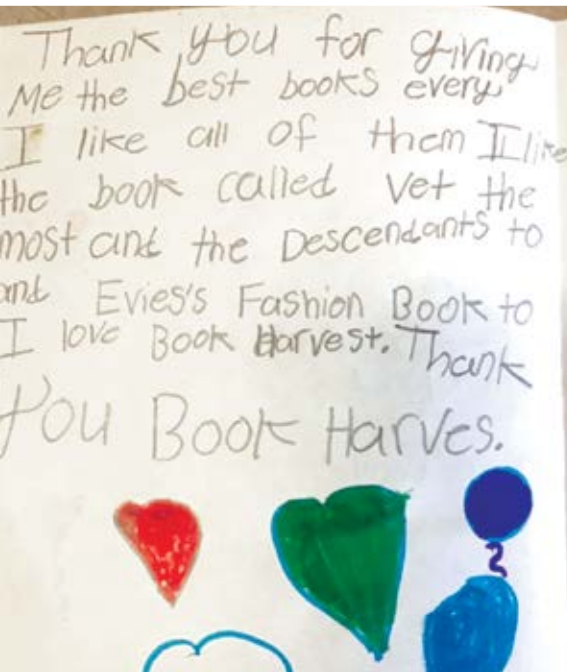 Thank you for giving
Me the best books every
I like all of them I like
the book called Vet the
most and the Descendants to
and Evies's Fashion Book to
I love Book Harvest. Thank
You Book Harves.